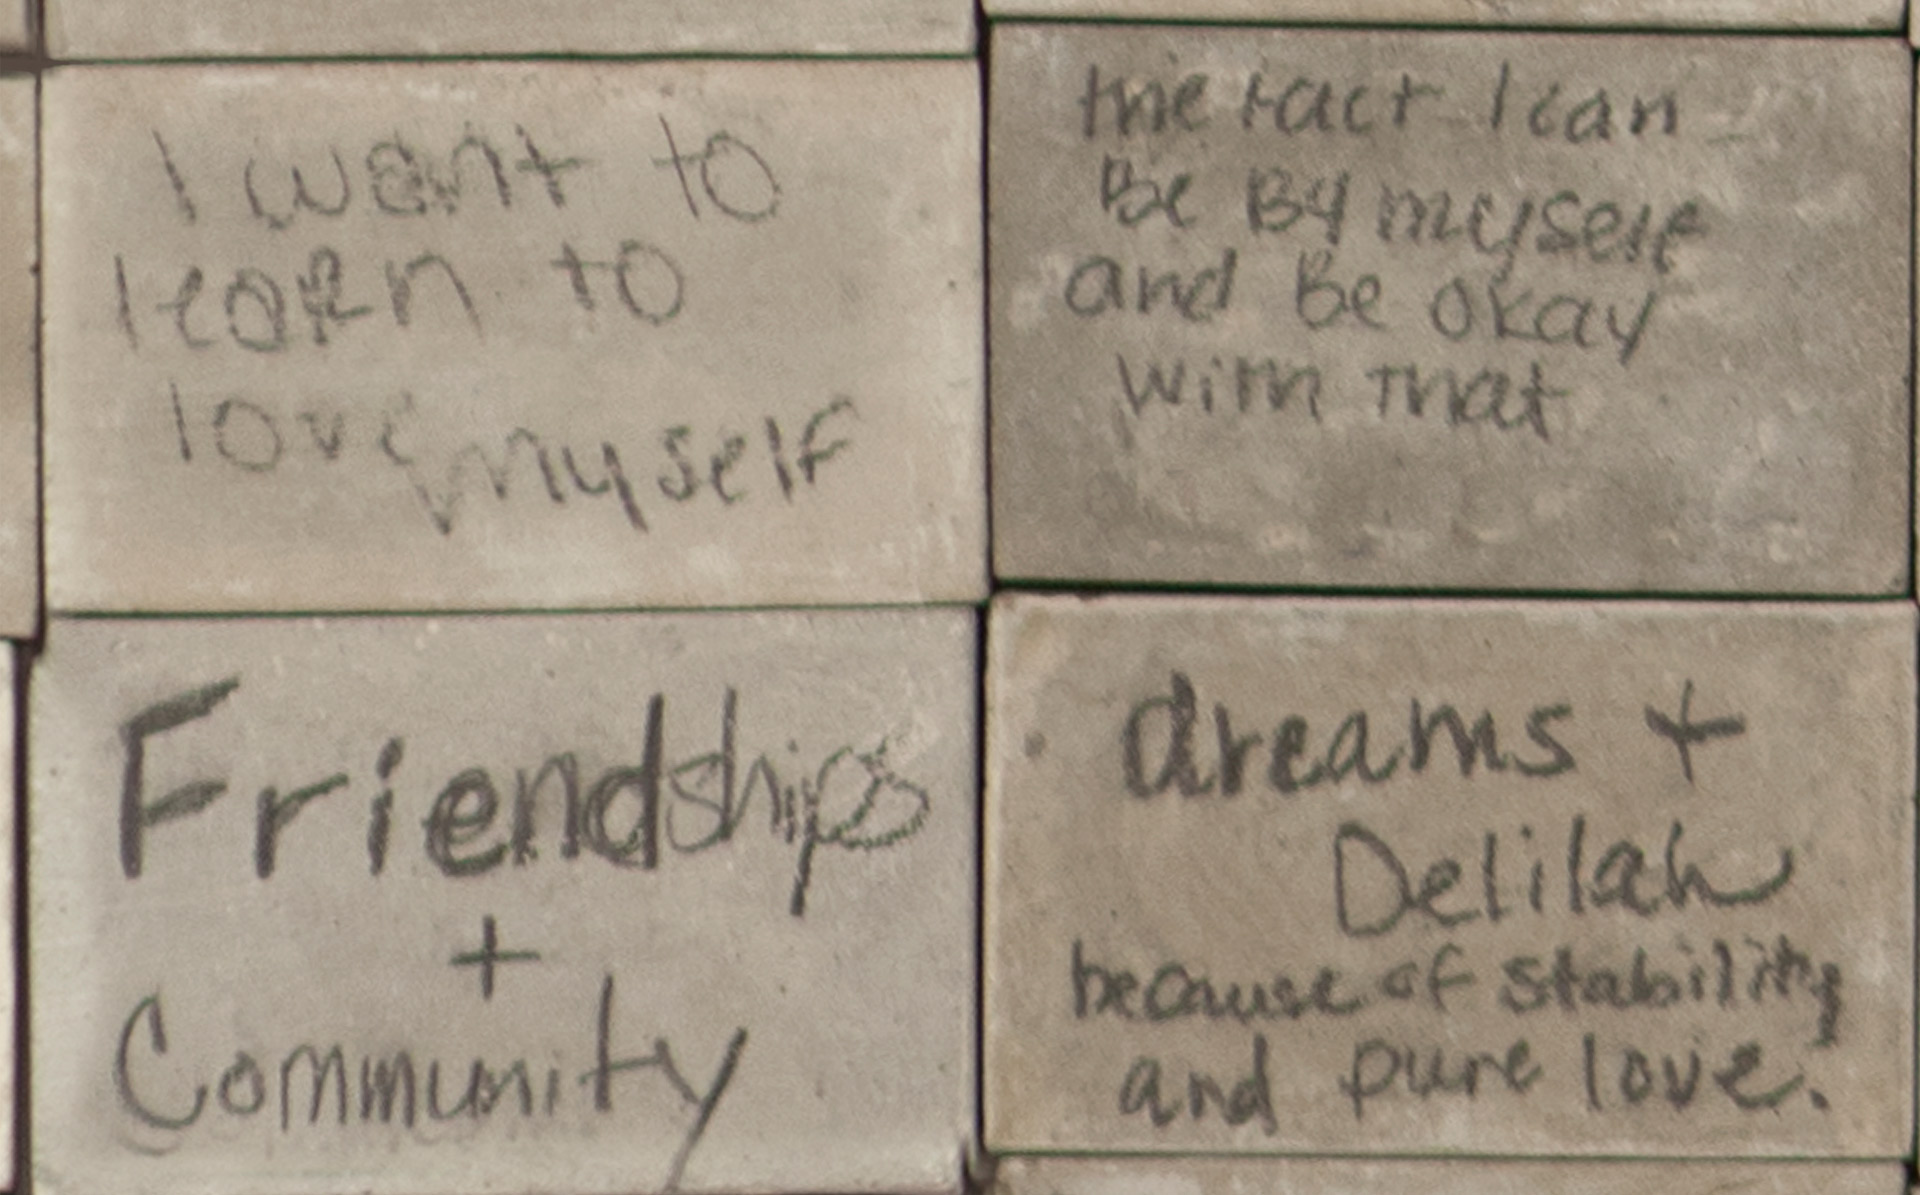 I want to
learn to
love myself
the fact I can
Be By myself
and Be okay
with that
Friendships
+
Community
dreams +
Delilah
because of stability
and pure love.